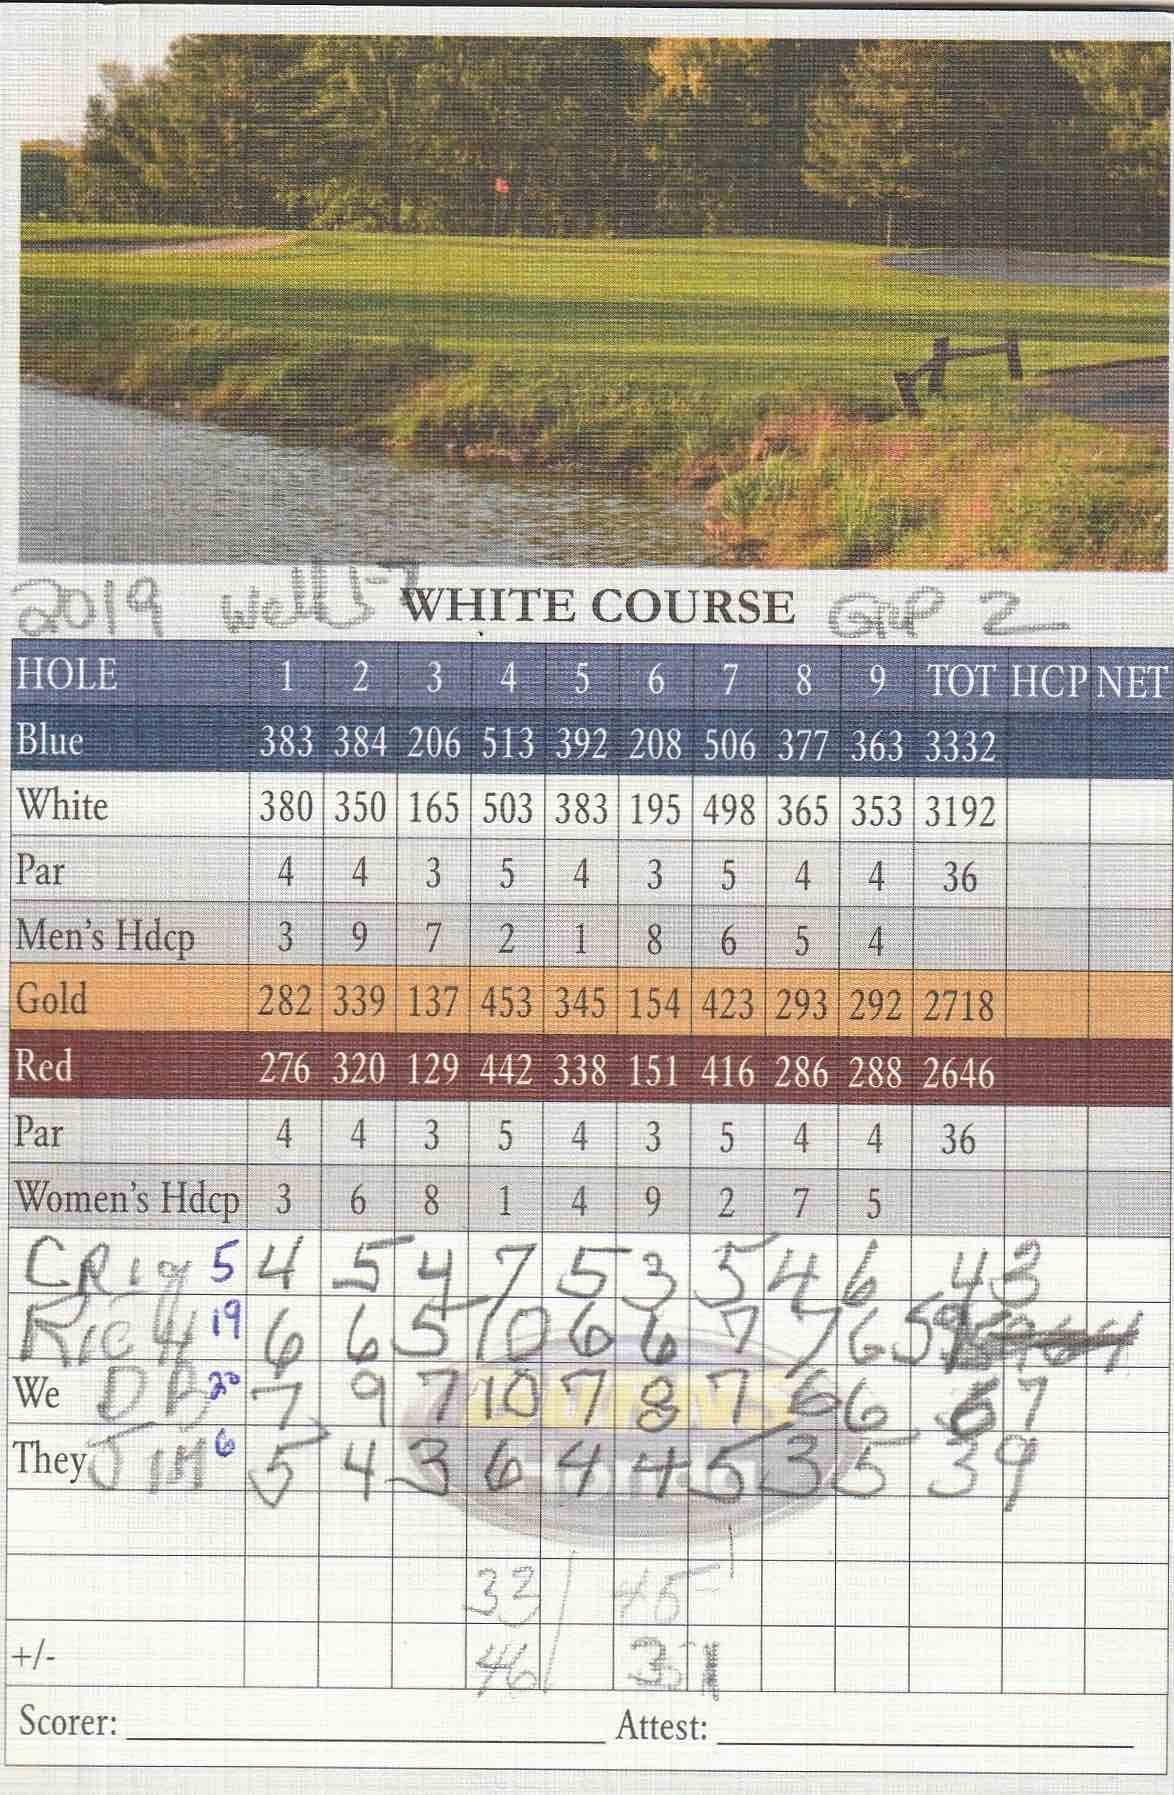 2019 Well 5-7 WHITE COURSE GRP 2
HOLE 1 2 3 4 5 6 7 8 9 TOT HCP NET
Blue 383 384 206 513 392 208 506 377 363 3332
White 380 350 165 503 383 195 498 365 353 3192
Par 4 4 3 5 4 3 5 4 4 36
Men's Hdcp 3 9 7 2 1 8 6 5 4
Gold 282 339 137 453 345 154 423 293 292 2718
Red 276 320 129 442 338 151 416 286 288 2646
Par 4 4 3 5 4 3 5 4 4 36
Women's Hdcp 3 6 8 1 4 9 2 7 5
CRIG 5 4 5 4 7 5 3 5 4 6 43
RICH 19 6 6 5 10 6 6 7 7 6 59
We DB 20 7 9 7 10 7 8 7 6 6 67
They JIM 6 5 4 3 6 4 4 5 3 5 39
33 45
+/- 46 31
Scorer: Attest: